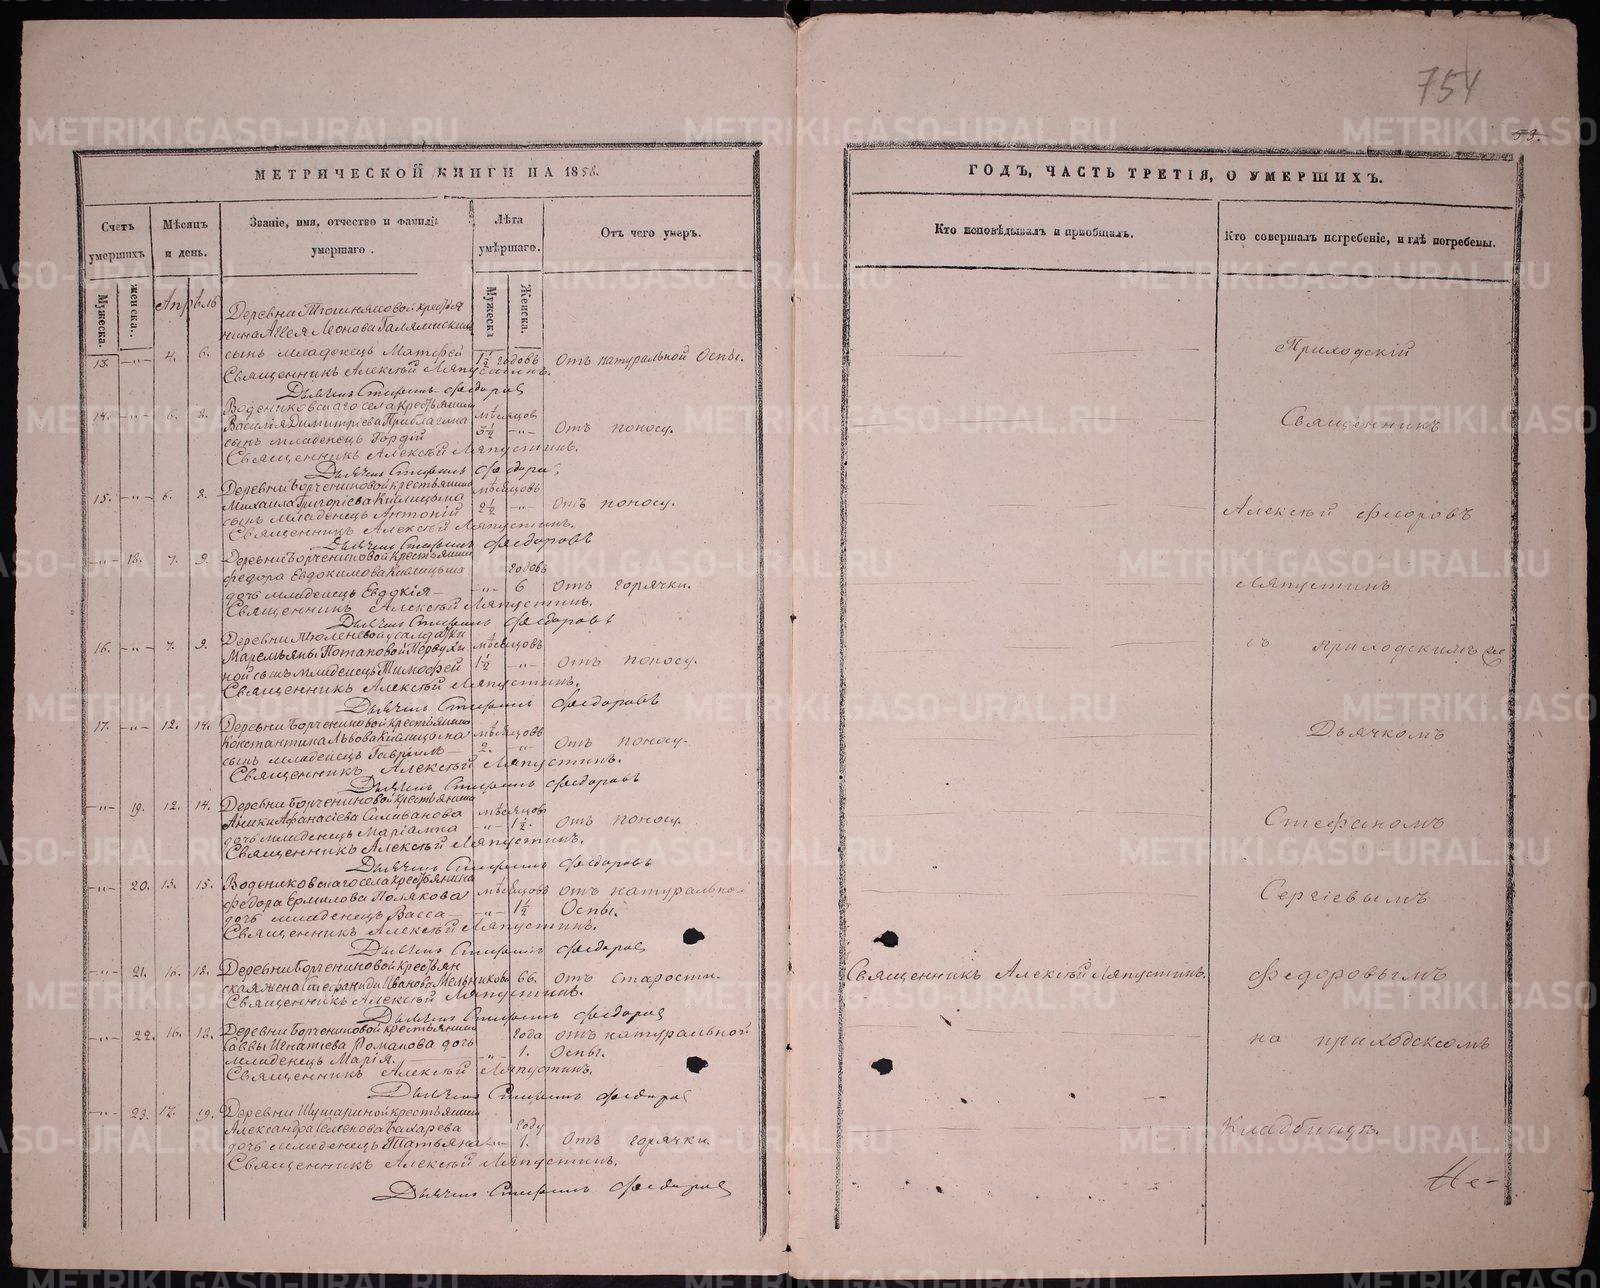 754
59.
МЕТРИЧЕСКОЙ КНИГИ НА 1856.
Счетъ умершихъ
Мужеска.
женска.
Мѣсяцъ и день.
Званіе, имя, отчество и фамилія умершаго.
Лѣта умершаго.
Мужеска
Женска.
Отъ чего умеръ.
Апрѣль
Деревни крестья
нина Леонова
13. -"- 4. 6. сынъ младенецъ Матфей 1½ годовъ Отъ натуральной Оспы.
Священникъ Алексѣй Ляпустинъ.
Дьячекъ Стефанъ Федоровъ
Воденниковскаго села крестьянина мѣсяцов
14. -"- 6. 8. Василія Димитріева 3½ -"- Отъ поносу.
сынъ младенецъ Гордій
Священникъ Алексѣй Ляпустинъ.
Дьячекъ Стефанъ Федоровъ
Деревни крестьянина мѣсяцовъ
15. -"- 6. 8. Михаила Григоріева 2½ -"- Отъ поносу.
сынъ младенецъ Антоній
Священникъ Алексѣй Ляпустинъ.
Дьячекъ Стефанъ Федоровъ
-"- 18. 7. 9. Деревни крестьянина годовъ
Федора Евдокимова
дочь младенецъ Евдокія -"- 6 Отъ горячки.
Священникъ Алексѣй Ляпустинъ.
Дьячекъ Стефанъ Федоровъ
Деревни Тюленевой солдатки
16. -"- 7. 9. Потаповой мѣсяцовъ
ной сынъ младенецъ Тимофей 1½ -"- Отъ поносу.
Священникъ Алексѣй Ляпустинъ.
Дьячекъ Стефанъ Федоровъ
17. -"- 12. 14. Деревни крестьянина
Константина Львова мѣсяцовъ
сынъ младенецъ Гавріилъ 2. " Отъ поносу.
Священникъ Алексѣй Ляпустинъ.
Дьячекъ Стефанъ Федоровъ
-"- 19. 12. 14. Деревни крестьянина
Аники Афанасіева Силиванова мѣсяцовъ
дочь младенецъ Маріамна -"- 1½. Отъ поносу.
Священникъ Алексѣй Ляпустинъ.
Дьячекъ Стефанъ Федоровъ
-"- 20. 13. 15. Воденниковскаго села крестьянина
Федора Ермилова Полякова мѣсяцовъ Отъ натуральной
дочь младенецъ Васса -"- 1½ Оспы.
Священникъ Алексѣй Ляпустинъ.
Дьячекъ Стефанъ Федоровъ
-"- 21. 16. 18. Деревни крестьян
ская жена Стефанида Иванова Мельникова 66. Отъ старости.
Священникъ Алексѣй Ляпустинъ.
Дьячекъ Стефанъ Федоровъ
-"- 22. 16. 18. Деревни крестьянина года Отъ натуральной
Саввы Игнатіева Романова дочь
младенецъ Марія. -"- 1. Оспы.
Священникъ Алексѣй Ляпустинъ.
Дьячекъ Стефанъ Федоровъ
-"- 23. 17. 19. Деревни крестьянина
Александра Семенова Бахарева году
дочь младенецъ Татьяна -"- 1. Отъ горячки.
Священникъ Алексѣй Ляпустинъ.
Дьячекъ Стефанъ Федоровъ
ГОДЪ, ЧАСТЬ ТРЕТІЯ, О УМЕРШИХЪ.
Кто исповѣдывалъ и пріобщалъ.
Кто совершалъ погребеніе, и гдѣ погребены.
Приходскій
Священникъ
Алексѣй Феоровъ
Ляпустинъ
съ приходскимъ
Дьячкомъ
Стефаномъ
Сергіевымъ
Священникъ Алексѣй Ляпустинъ. Федоровымъ
на приходском
Кладбищѣ.
Не-
METRIKI.GASO-URAL.RU